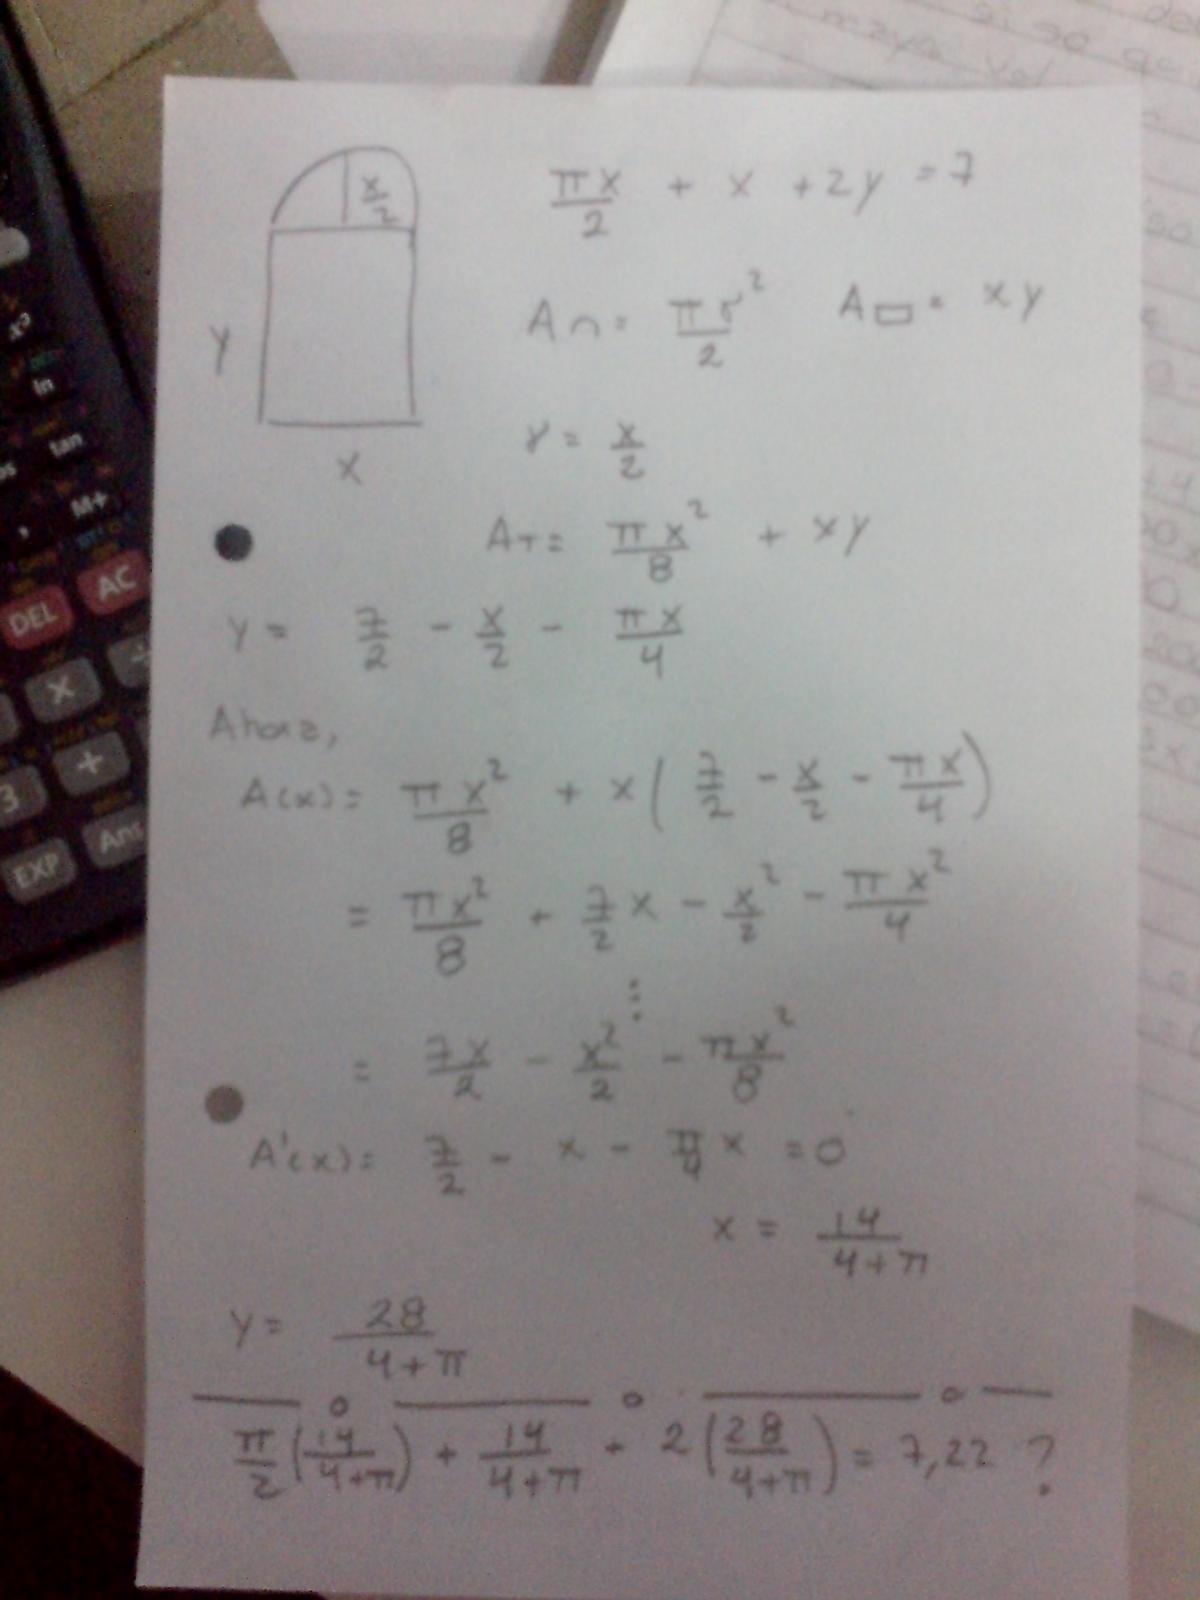 x/2
y
x
πx/2 + x + 2y = 7
A∩ = πr²/2 A▭ = xy
r = x/2
AT = πx²/8 + xy
y = 7/2 - x/2 - πx/4
Ahora,
A(x) = πx²/8 + x(7/2 - x/2 - πx/4)
= πx²/8 + 7/2 x - x²/2 - πx²/4
⋮
= 7x/2 - x²/2 - πx²/8
A'(x) = 7/2 - x - π/4 x = 0
x = 14/(4+π)
y = 28/(4+π)
π/2 (14/(4+π)) + 14/(4+π) + 2(28/(4+π)) = 7,22 ?
ln
tan
M+
,
DEL
AC
x
÷
3
+
EXP
Ans